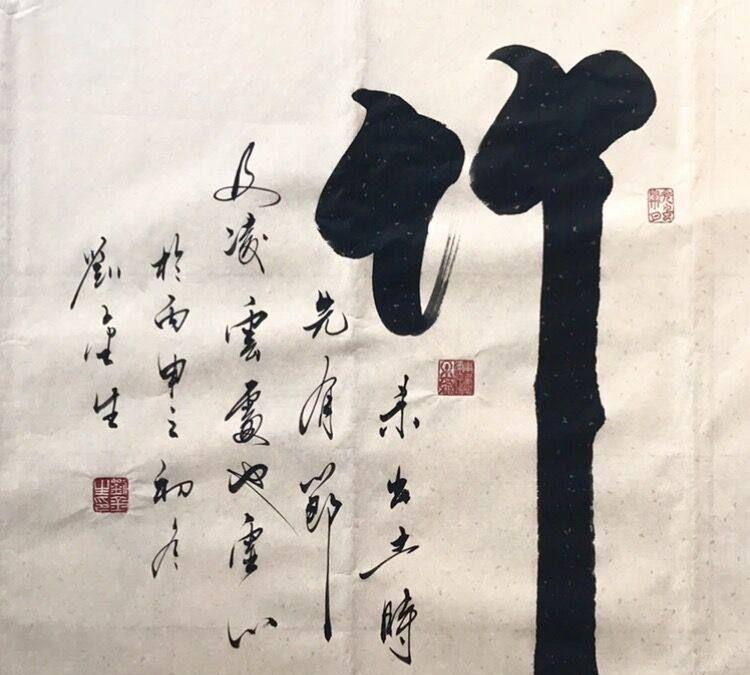 竹
未出土時
先有節
及凌雲處也虛心
於丙申之初冬
劉生